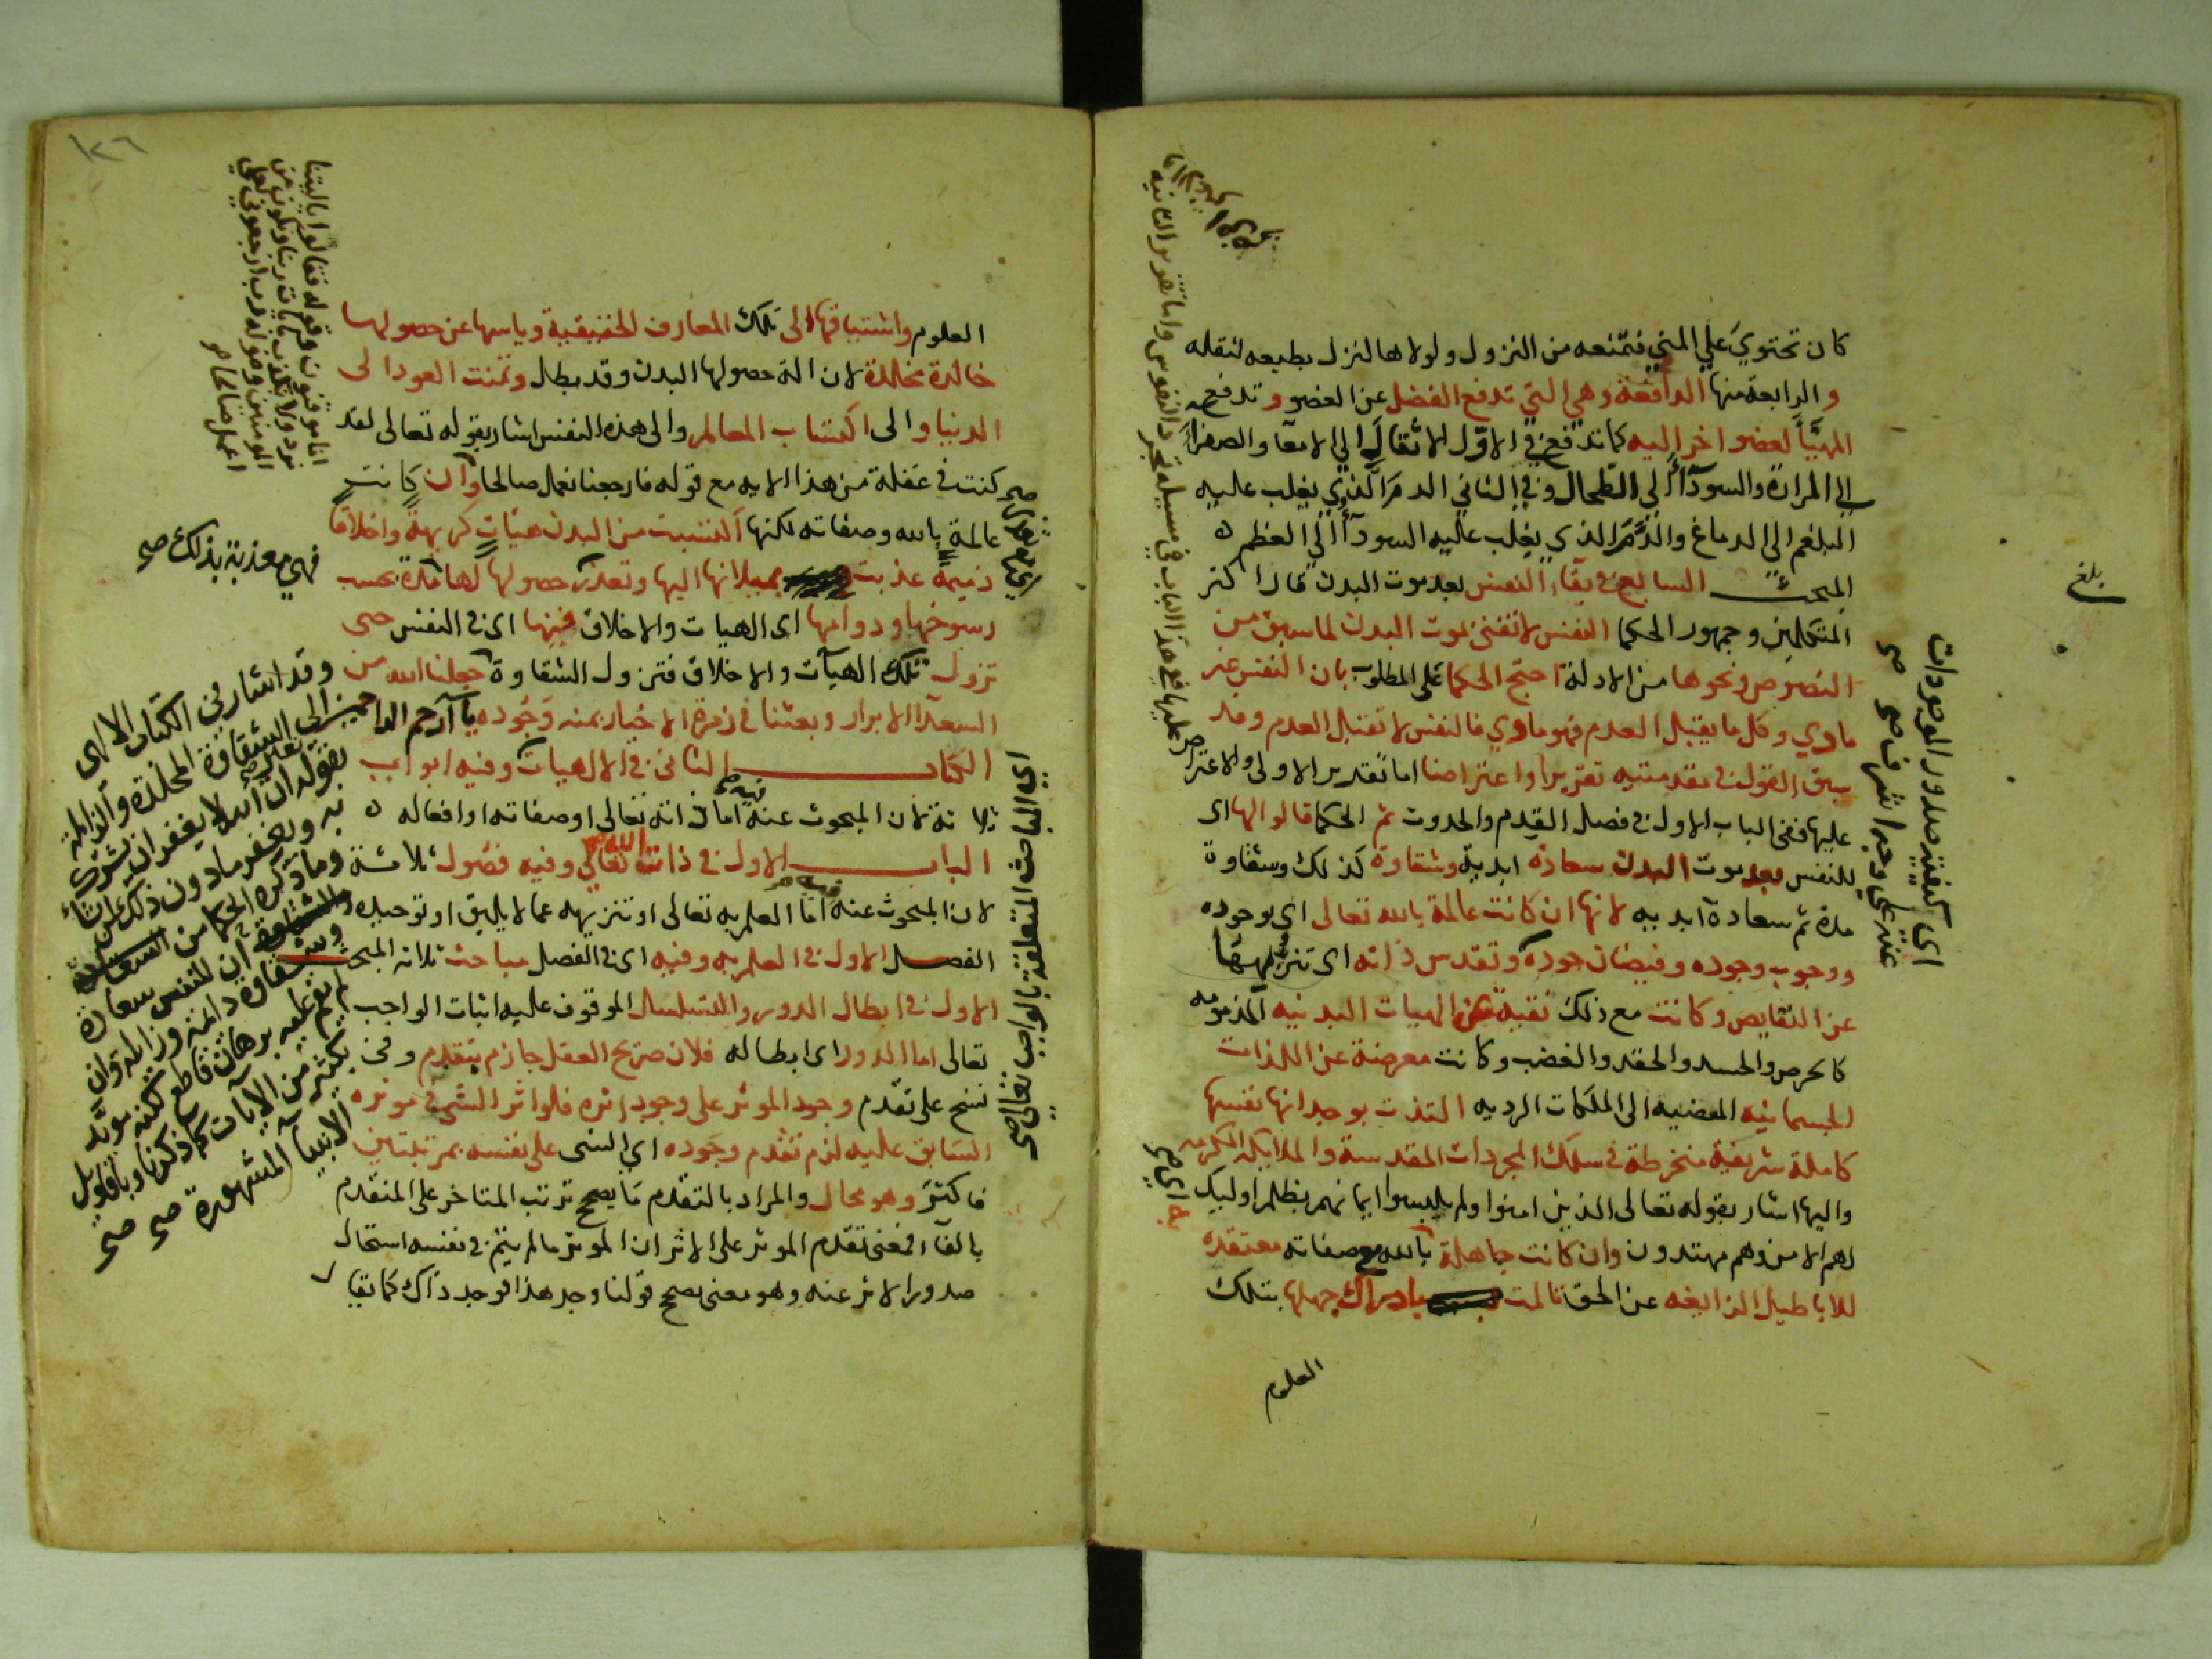 كان تحتوي علي المني فتمنعه من النزول ولولاها لنزل بطبعه لثقله
والرابعة منها الدافعة وهي التي تدفع الفضل عن العضو وتدفع
المهيّأ لعضو اخر اليه كما تدفع في الاوّل الاثقال الي الامعا والصفرا
الي المرارة والسودآ الي الطحال وفي الثاني الدم الذي يغلب عليه
البلغم الي الدماغ والدم الذي يغلب عليه السودآ الي العظم ه
المبحث السابع في بقاء النفس بعد موت البدن قال اكثر
المتكلمين وجمهور الحكما النفس لا تفنى بموت البدن لما سبق من
النصوص ونحوها من الادلة احتج الحكما على المطلوب بان النفس غير
مادي وكل ما يقبل العدم فهو مادي فالنفس لا تقبل العدم وقد
سبق القول في مقدمتيه تقريرا واعتراضا اما تقدير الاولى والاعتراض
عليها ففي الباب الاول في فصل القدم والحدوث ثم الحكما قالوا لها اى
للنفس بعد موت البدن سعادة ابدية وشقاوة كذلك وشقاوة
مدة ثم سعادة ابديه لانها ان كانت عالمة بالله تعالى اى بوجوده
ووجوب وجوده وفيضان جوده وتقدس ذاته اى تنزيهها
عن النقايص وكانت مع ذلك نقية عن الهيات البدنيه المذمومه
كالحرص والحسد والحقد والغضب وكانت معرضة عن اللذات
الجسمانيه المفضيه الى الملكات الرديه التذت بوجدانها نفسها
كاملة شريفية منخرطة في سلك المجردات المقدسة والملايكة المكرمه
واليها اشار بقوله تعالى الذين امنوا ولم يلبسوا ايمانهم بظلم اوليك
لهم الامن وهم مهتدون وان كانت جاهلة بالله وصفاته معتقدة
للاباطيل الزايغه عن الحق تالمت بادراك جهلها بتلك
العلوم
بلغ
اى كيفية صدور الموجودات
عنه علي وجه اشرف صح
العلوم واشتياقها الى تلك المعارف الحقيقية وياسها عن حصولها
خالدة مخلدة لان الة حصولها البدن وقد بطل وتمنت العود الى
الدنيا والى اكتساب المعالم والى هذه النفس اشار بقوله تعالى لقد
كنت في غفلة من هذا الايه مع قوله فارجعنا نعمل صالحا وان كانت
عالمة بالله وصفاته لكنها اكتسبت من البدن هيات كريهة واخلاقا
ذميمة عذبت بميلانها اليها وتعذر حصولها لها مدة بحسب
رسوخها ودوامها اى الهيات والاخلاق فيها اى في النفس حتى
تزول تلك الهيآت والاخلاق فتزول الشقاوة جعلنا الله من
السعدآ الابرار وبعثنا في زمرة الاخيار بمنه وجوده يا ارحم الراحمين
الكتاب الثاني في الالهيات وفيه ابواب
ثلاثة لان المبحوث عنه فيه اما ذاته تعالى او صفاته او افعاله ه
الباب الاول في ذات الله تعالي وفيه فصول ثلاثة
لان المبحوث عنه فيه اما العلم به تعالى او تنزيهه عما لا يليق او توحيده
الفصل الاول في العلم به وفيه اى في الفصل مباحث ثلاثه المبحث
الاول في ابطال الدور والتسلسل الموقوف عليه اثبات الواجب
تعالى اما الدور اى ابطاله فلان صريح العقل جازم بتقدم وفي
نسخ على تقدم وجود الموثر على وجود اثره فلو اثر الشى في موثره
السابق عليه لزم تقدم وجوده اي الشى على نفسه بمرتبتين
فاكثر وهو محال والمراد بالتقدم ما يصح ترتب المتاخر على المتقدم
بالفاء فمعنى تقدم الموثر على الاثر ان الموثر مالم يتم في نفسه استحال
صدور الاثر عنه وهو معنى يصح قولنا وجد هذا فوجد ذاك كما يقا
فهي معذبة بذلك صح
اى المباحث المتعلقة بالواجب تعالى صح
وقد اشار في الكتاب الالهى
الى الشقاوة المخلدة والزايلة
بقوله تعالى ان الله لا يغفر ان يشرك
به ويغفر ما دون ذلك لمن يشا
وما ذكره الحكما من
ان للنفس سعادة
وشقاوة دايمة وزايلة وان
لم يقم عليه برهان قاطع لكنه مويد
بكثير من الايات كما ذكرنا وباقاويل
الانبيآ المشهورة صح
١٢٦